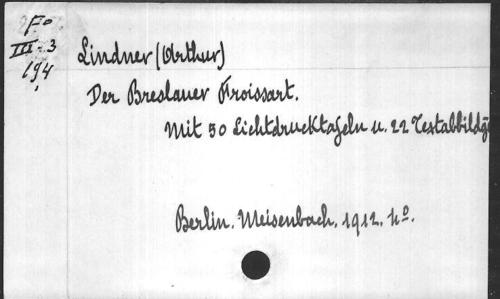 Fº
III-3
194
Lindner (Arthur)
Der Breslauer Froissart.
Mit 50 Lichtdrucktafeln u. 22 Textabbildg
Berlin. Meisenbach, 1912. 4º.